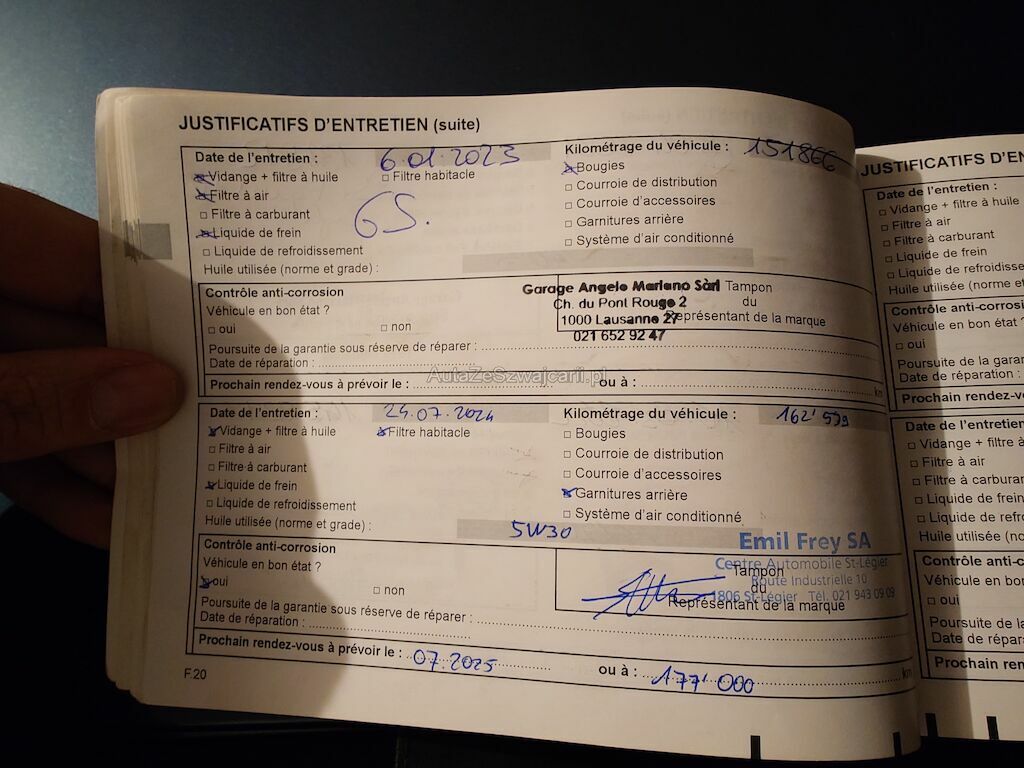 JUSTIFICATIFS D'ENTRETIEN (suite)
Date de l'entretien : 6.01.2023 Kilométrage du véhicule : 151866
Vidange + filtre à huile Filtre habitacle Bougies
Filtre à air Courroie de distribution
Filtre à carburant GS. Courroie d'accessoires
Liquide de frein Garnitures arrière
Liquide de refroidissement Système d'air conditionné
Huile utilisée (norme et grade) :
Contrôle anti-corrosion
Véhicule en bon état ?
oui non
Garage Angelo Mariano Sàrl
Ch. du Pont Rouge 2
1000 Lausanne 27
021 652 92 47
Tampon
du
Représentant de la marque
Poursuite de la garantie sous réserve de réparer :
Date de réparation :
Prochain rendez-vous à prévoir le : ou à : km
AutaZeSzwajcarii.pl
Date de l'entretien : 24.07.2024 Kilométrage du véhicule : 162'599
Vidange + filtre à huile Filtre habitacle Bougies
Filtre à air Courroie de distribution
Filtre à carburant Courroie d'accessoires
Liquide de frein Garnitures arrière
Liquide de refroidissement Système d'air conditionné
Huile utilisée (norme et grade) : 5W30
Contrôle anti-corrosion
Véhicule en bon état ?
oui non
Emil Frey SA
Centre Automobile St-Légier
Route Industrielle 10
1806 St-Légier Tél. 021 943 09 09
Tampon
du
Représentant de la marque
Poursuite de la garantie sous réserve de réparer :
Date de réparation :
Prochain rendez-vous à prévoir le : 07.2025 ou à : 177'000 km
F.20
JUSTIFICATIFS D'EN
Date de l'entretien :
Vidange + filtre à huile
Filtre à air
Filtre à carburant
Liquide de frein
Liquide de refroidisse
Huile utilisée (norme et
Contrôle anti-corrosi
Véhicule en bon état ?
oui
Poursuite de la garantie
Date de réparation :
Prochain rendez-vous
Date de l'entretien
Vidange + filtre à
Filtre à air
Filtre à carburan
Liquide de frein
Liquide de refro
Huile utilisée (no
Contrôle anti-co
Véhicule en bon
oui
Poursuite de la
Date de répar
Prochain ren